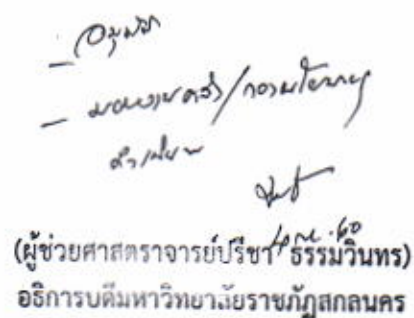 – อนุมัติ
– มอบงานคลัง/กองนโยบายฯ
ดำเนินการ
(ผู้ช่วยศาสตราจารย์ปรีชา ธรรมวินทร)
อธิการบดีมหาวิทยาลัยราชภัฏสกลนคร